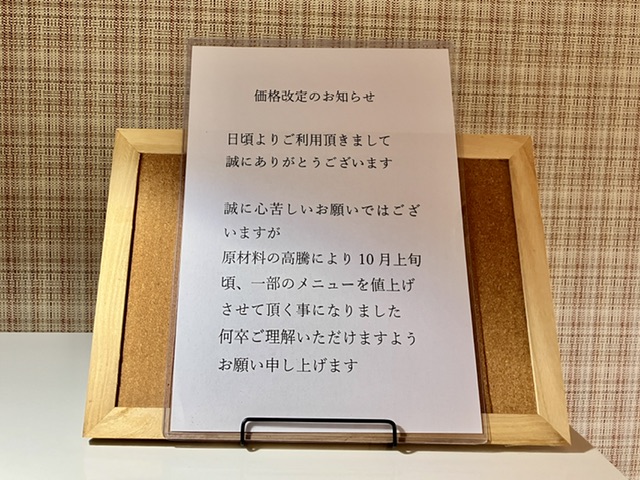 価格改定のお知らせ
日頃よりご利用頂きまして
誠にありがとうございます
誠に心苦しいお願いではござ
いますが
原材料の高騰により10月上旬
頃、一部のメニューを値上げ
させて頂く事になりました
何卒ご理解いただけますよう
お願い申し上げます